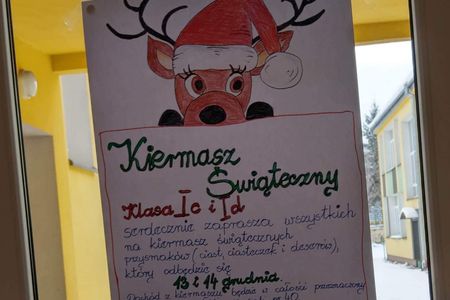 Kiermasz
Świąteczny
Klasa Ic i Id
serdecznie zaprasza wszystkich
na kiermasz świątecznych
przysmaków (ciast, ciasteczek i deserów),
który odbędzie się
13 i 14 grudnia.
Dochód z kiermaszu będzie w całości przeznaczony
40